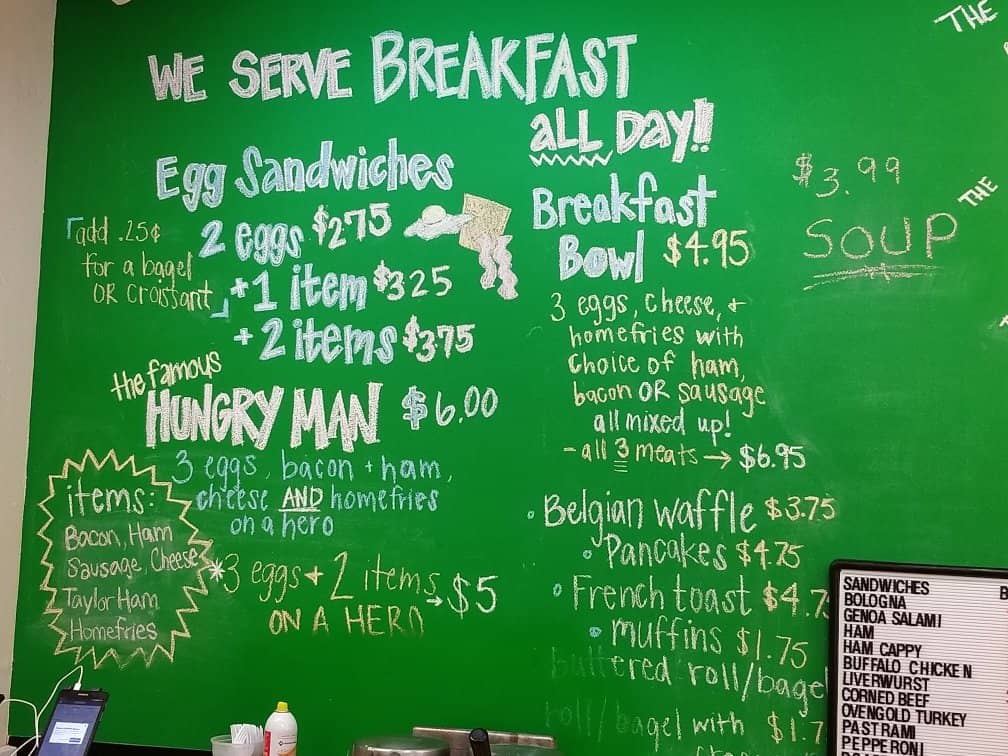 WE SERVE BREAKFAST
ALL DAY!!
Egg Sandwiches
add .25¢
for a bagel
OR croissant
2 eggs $2.75
+1 item $3.25
+2 items $3.75
the famous
HUNGRY MAN $6.00
3 eggs, bacon + ham,
cheese AND homefries
on a hero
items:
Bacon, Ham
Sausage, Cheese
Taylor Ham
Homefries
*3 eggs + 2 items → $5
ON A HERO
Breakfast
Bowl $4.95
3 eggs, cheese, +
homefries with
choice of ham,
bacon OR sausage
all mixed up!
- all 3 meats → $6.95
• Belgian waffle $3.75
• Pancakes $4.75
• French toast $4.7
• muffins $1.75
buttered roll/bagel
roll/bagel with $1.7
$3.99
SOUP
THE
THE
SANDWICHES
BOLOGNA
GENOA SALAMI
HAM
HAM CAPPY
BUFFALO CHICKEN
LIVERWURST
CORNED BEEF
OVENGOLD TURKEY
PASTRAMI
PEPPERONI